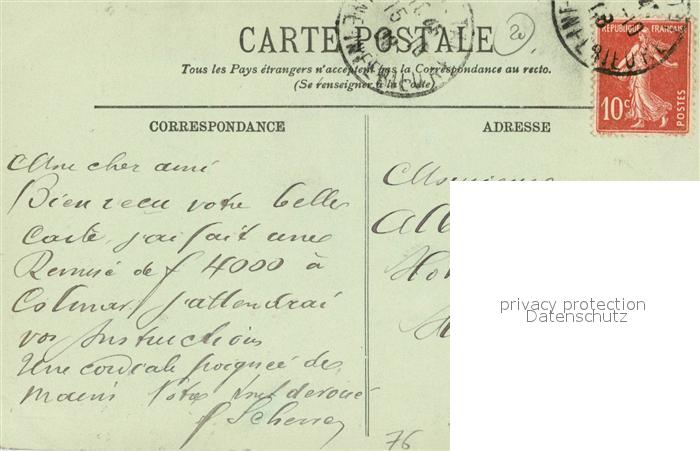 CARTE POSTALE
Tous les Pays étrangers n'acceptent pas la Correspondance au recto.
(Se renseigner à la Poste)
RÉPUBLIQUE FRANÇAISE
10c
POSTES
CORRESPONDANCE
ADRESSE
Mon cher ami
Bien recu votre belle
carte, j'ai fait une
Remise de f 4000 à
Colmar, j'attendrai
vos Instructions
Une cordiale poignée de
mains Votre tout devoué
Monsieur
privacy protection
Datenschutz
76